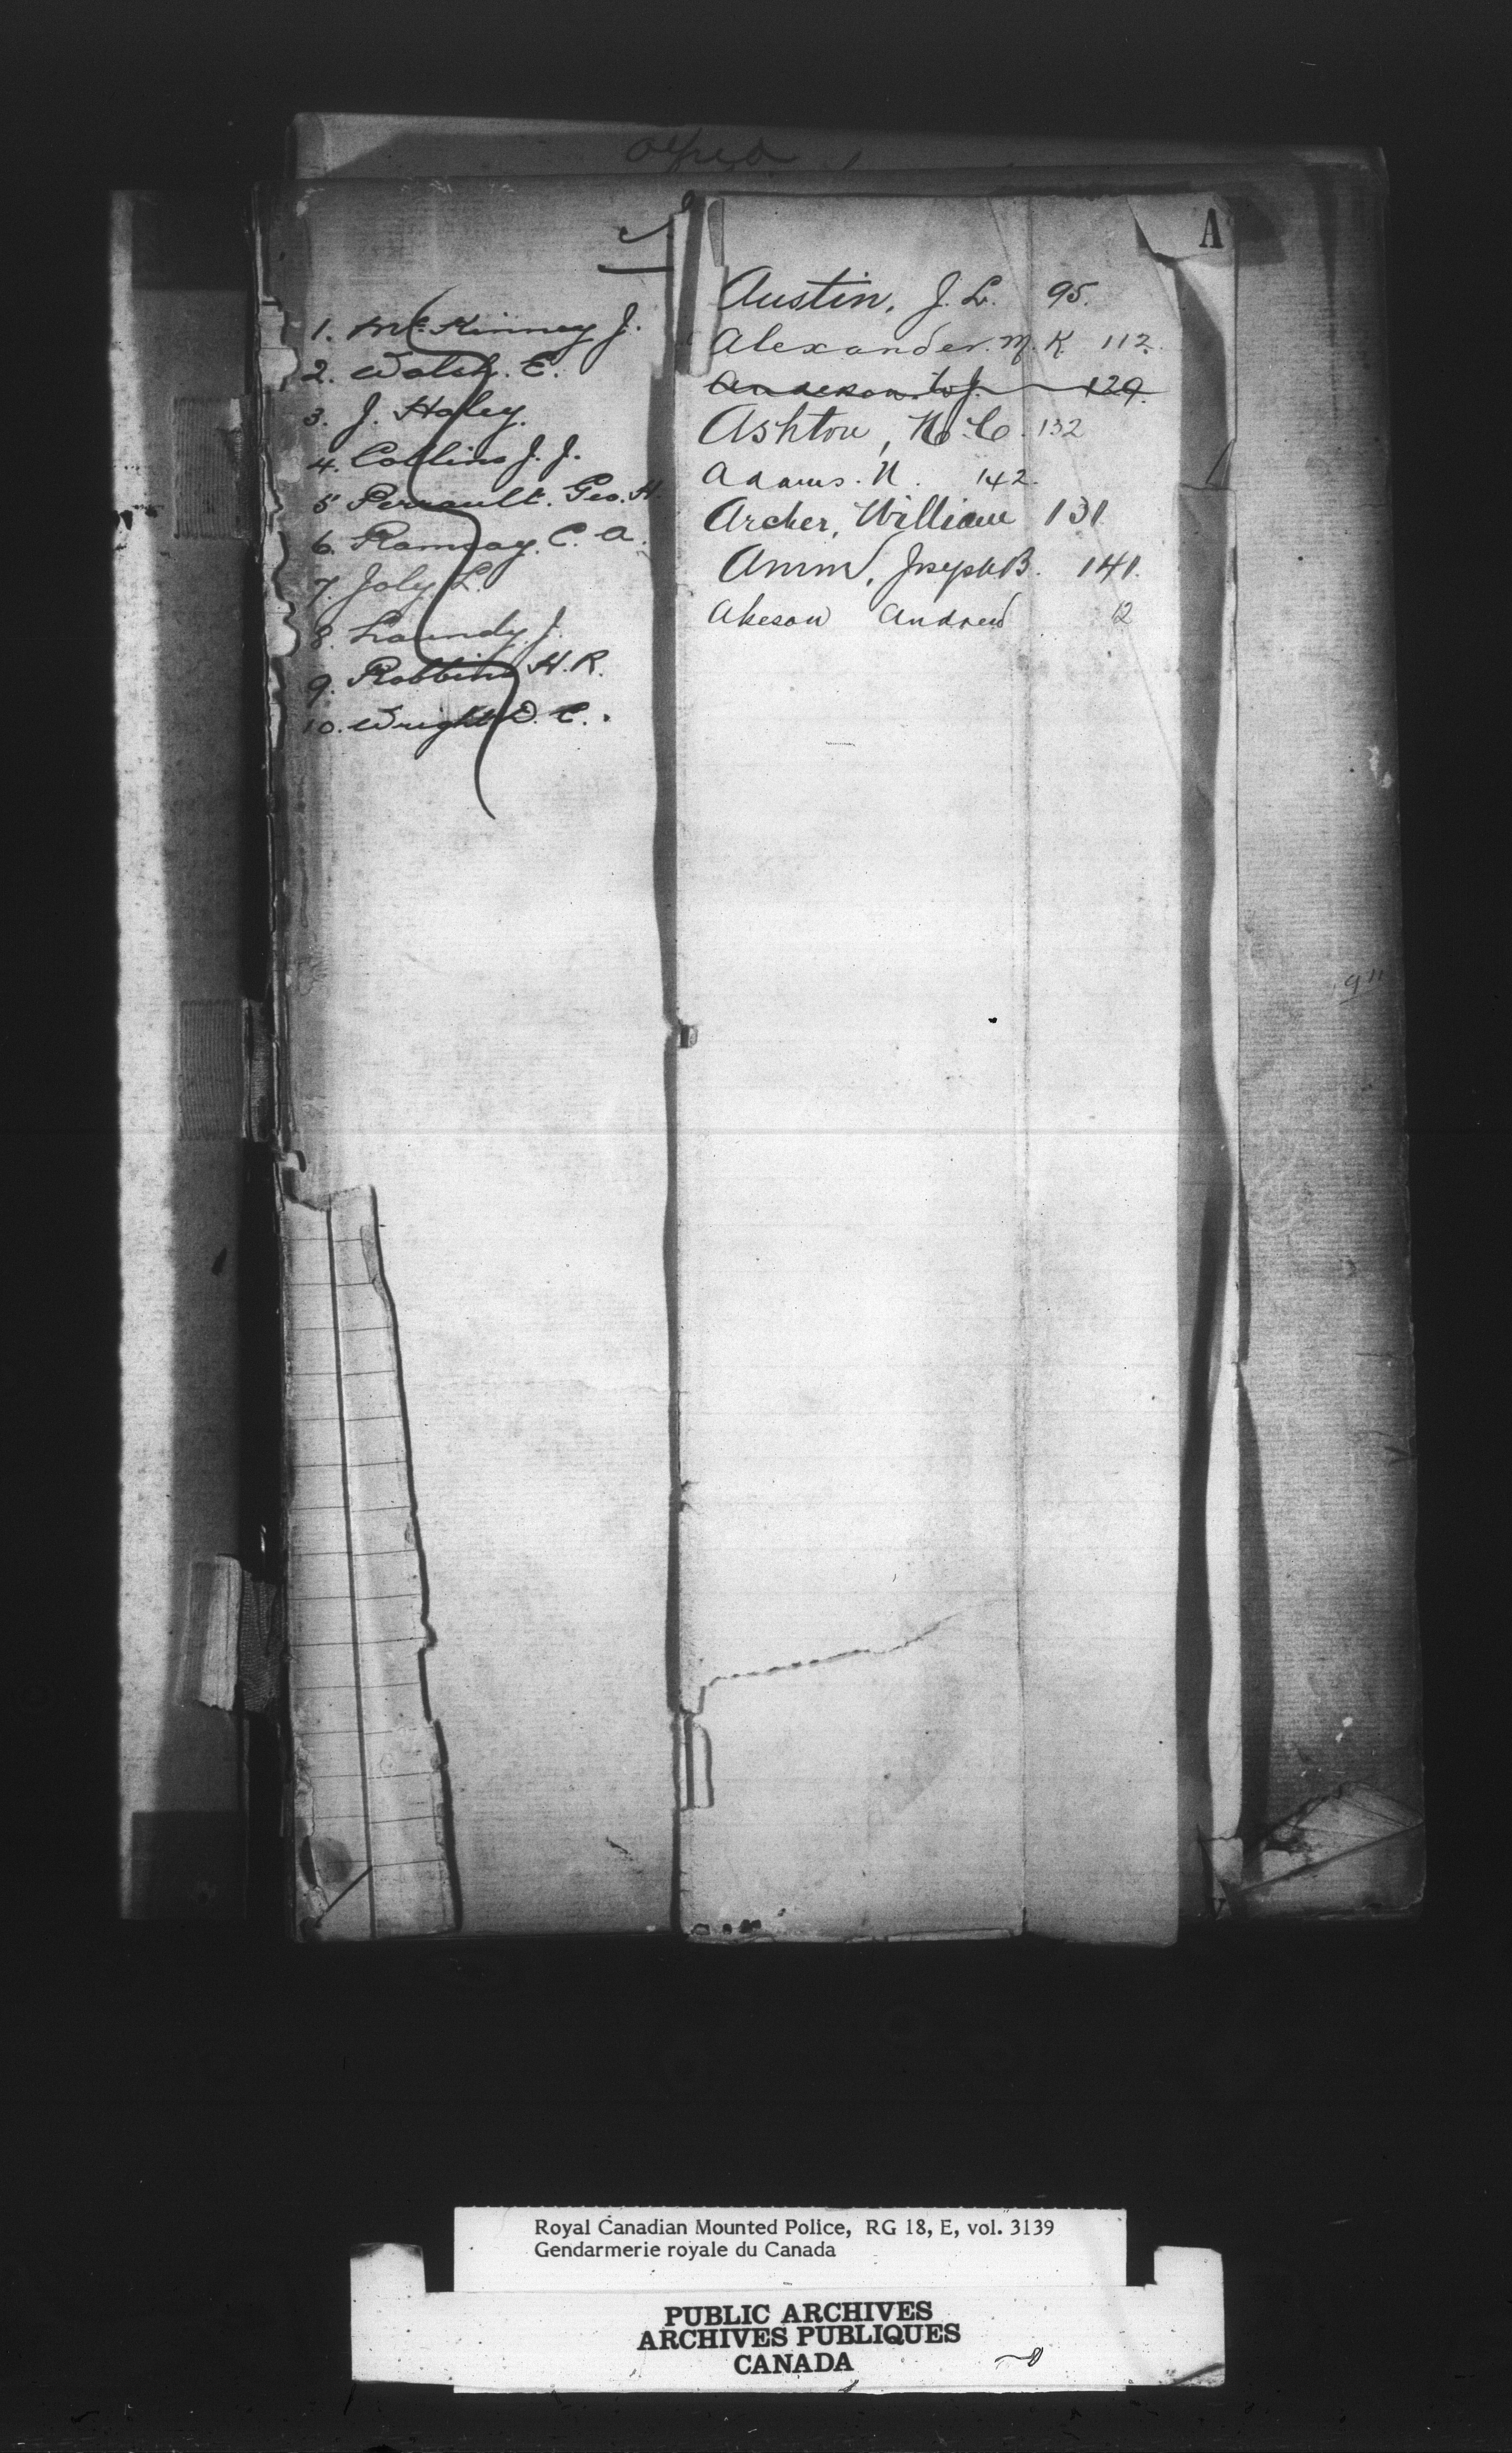 1. McKinney J.
2. Walsh. E.
3. J. Haley.
4. Collins J. J.
5 Perrault. Geo. H.
6. Ramsay. C. A.
7. Joly L.
8. Laundy. J.
9. Robbins H. R.
10. Wright D. C.
A
Austin, J. L. 95.
Alexander. M. K. 112.
Anderson. W J. 129.
Ashton, 132
Adams. N. 142.
Archer, William 131
Amm, Joseph B. 141.
Akeson Andrew 12
Royal Canadian Mounted Police, RG 18, E, vol. 3139
Gendarmerie royale du Canada
PUBLIC ARCHIVES
ARCHIVES PUBLIQUES
CANADA